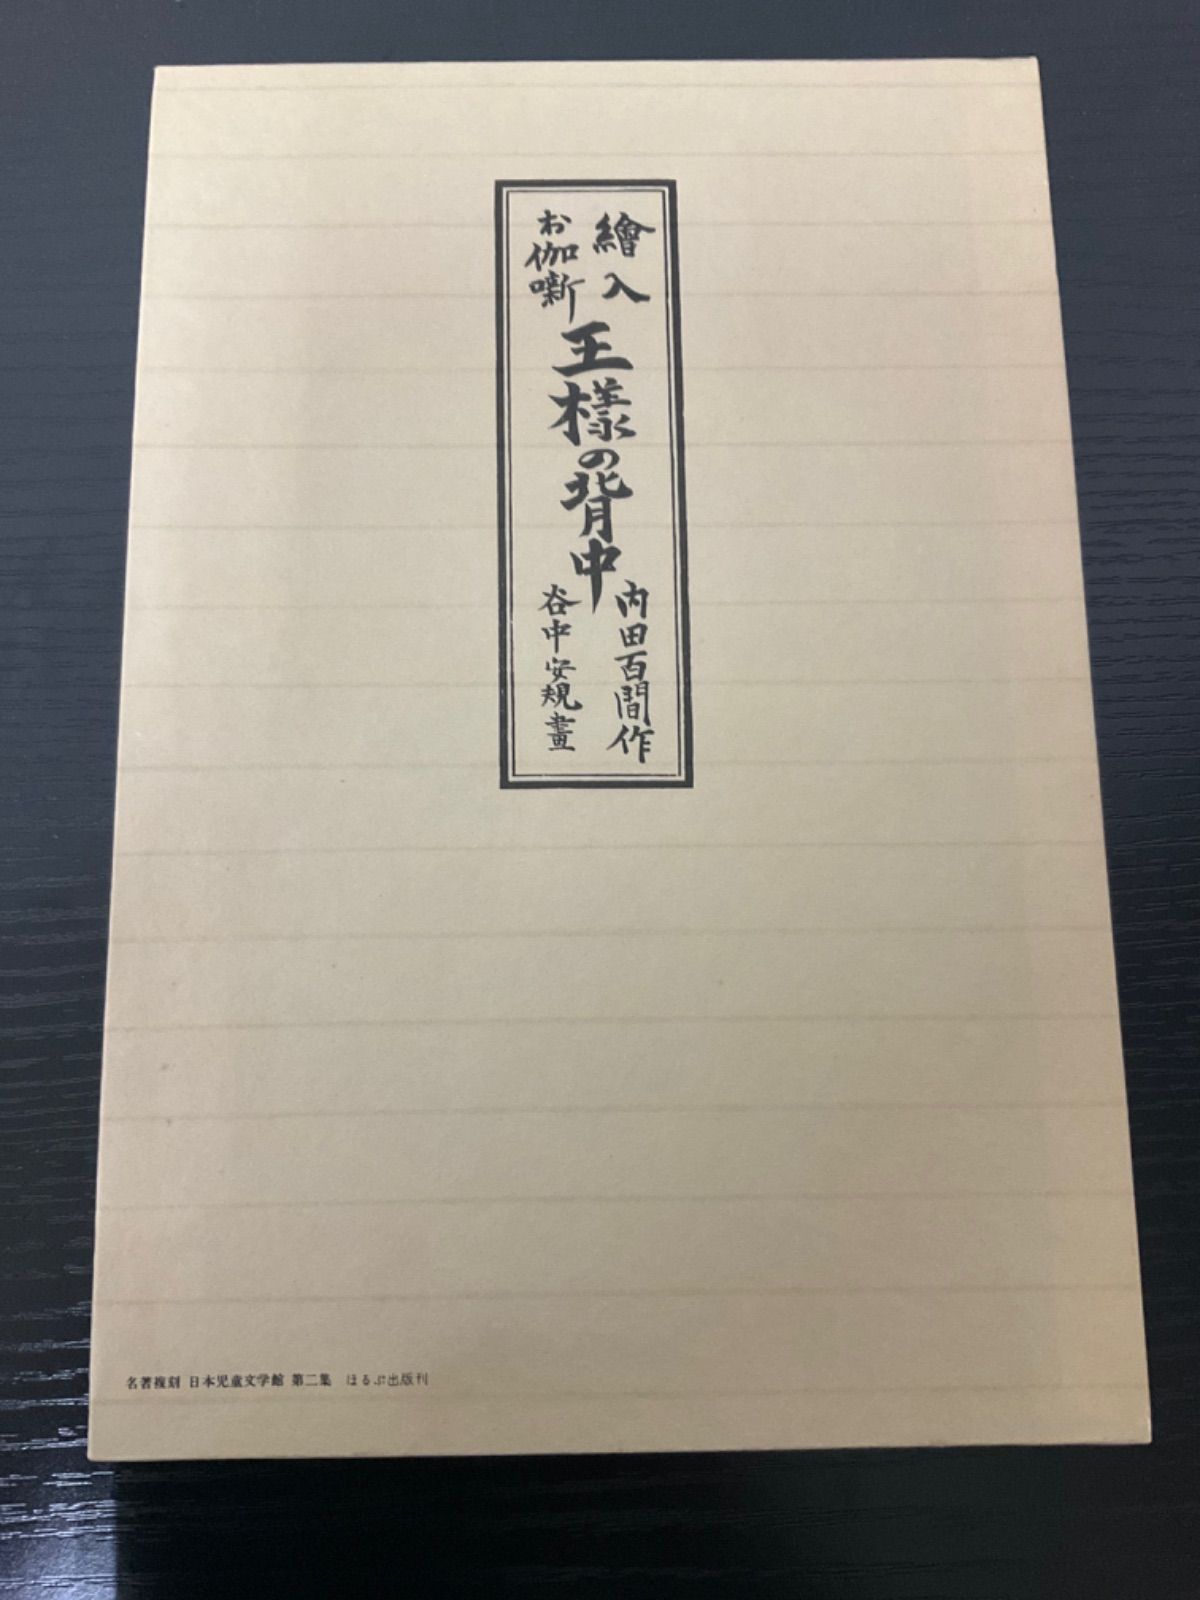 繪入
お伽噺
王樣の背中
内田百間作
谷中安規畫
名著複刻 日本児童文学館 第二集 ほるぷ出版刊